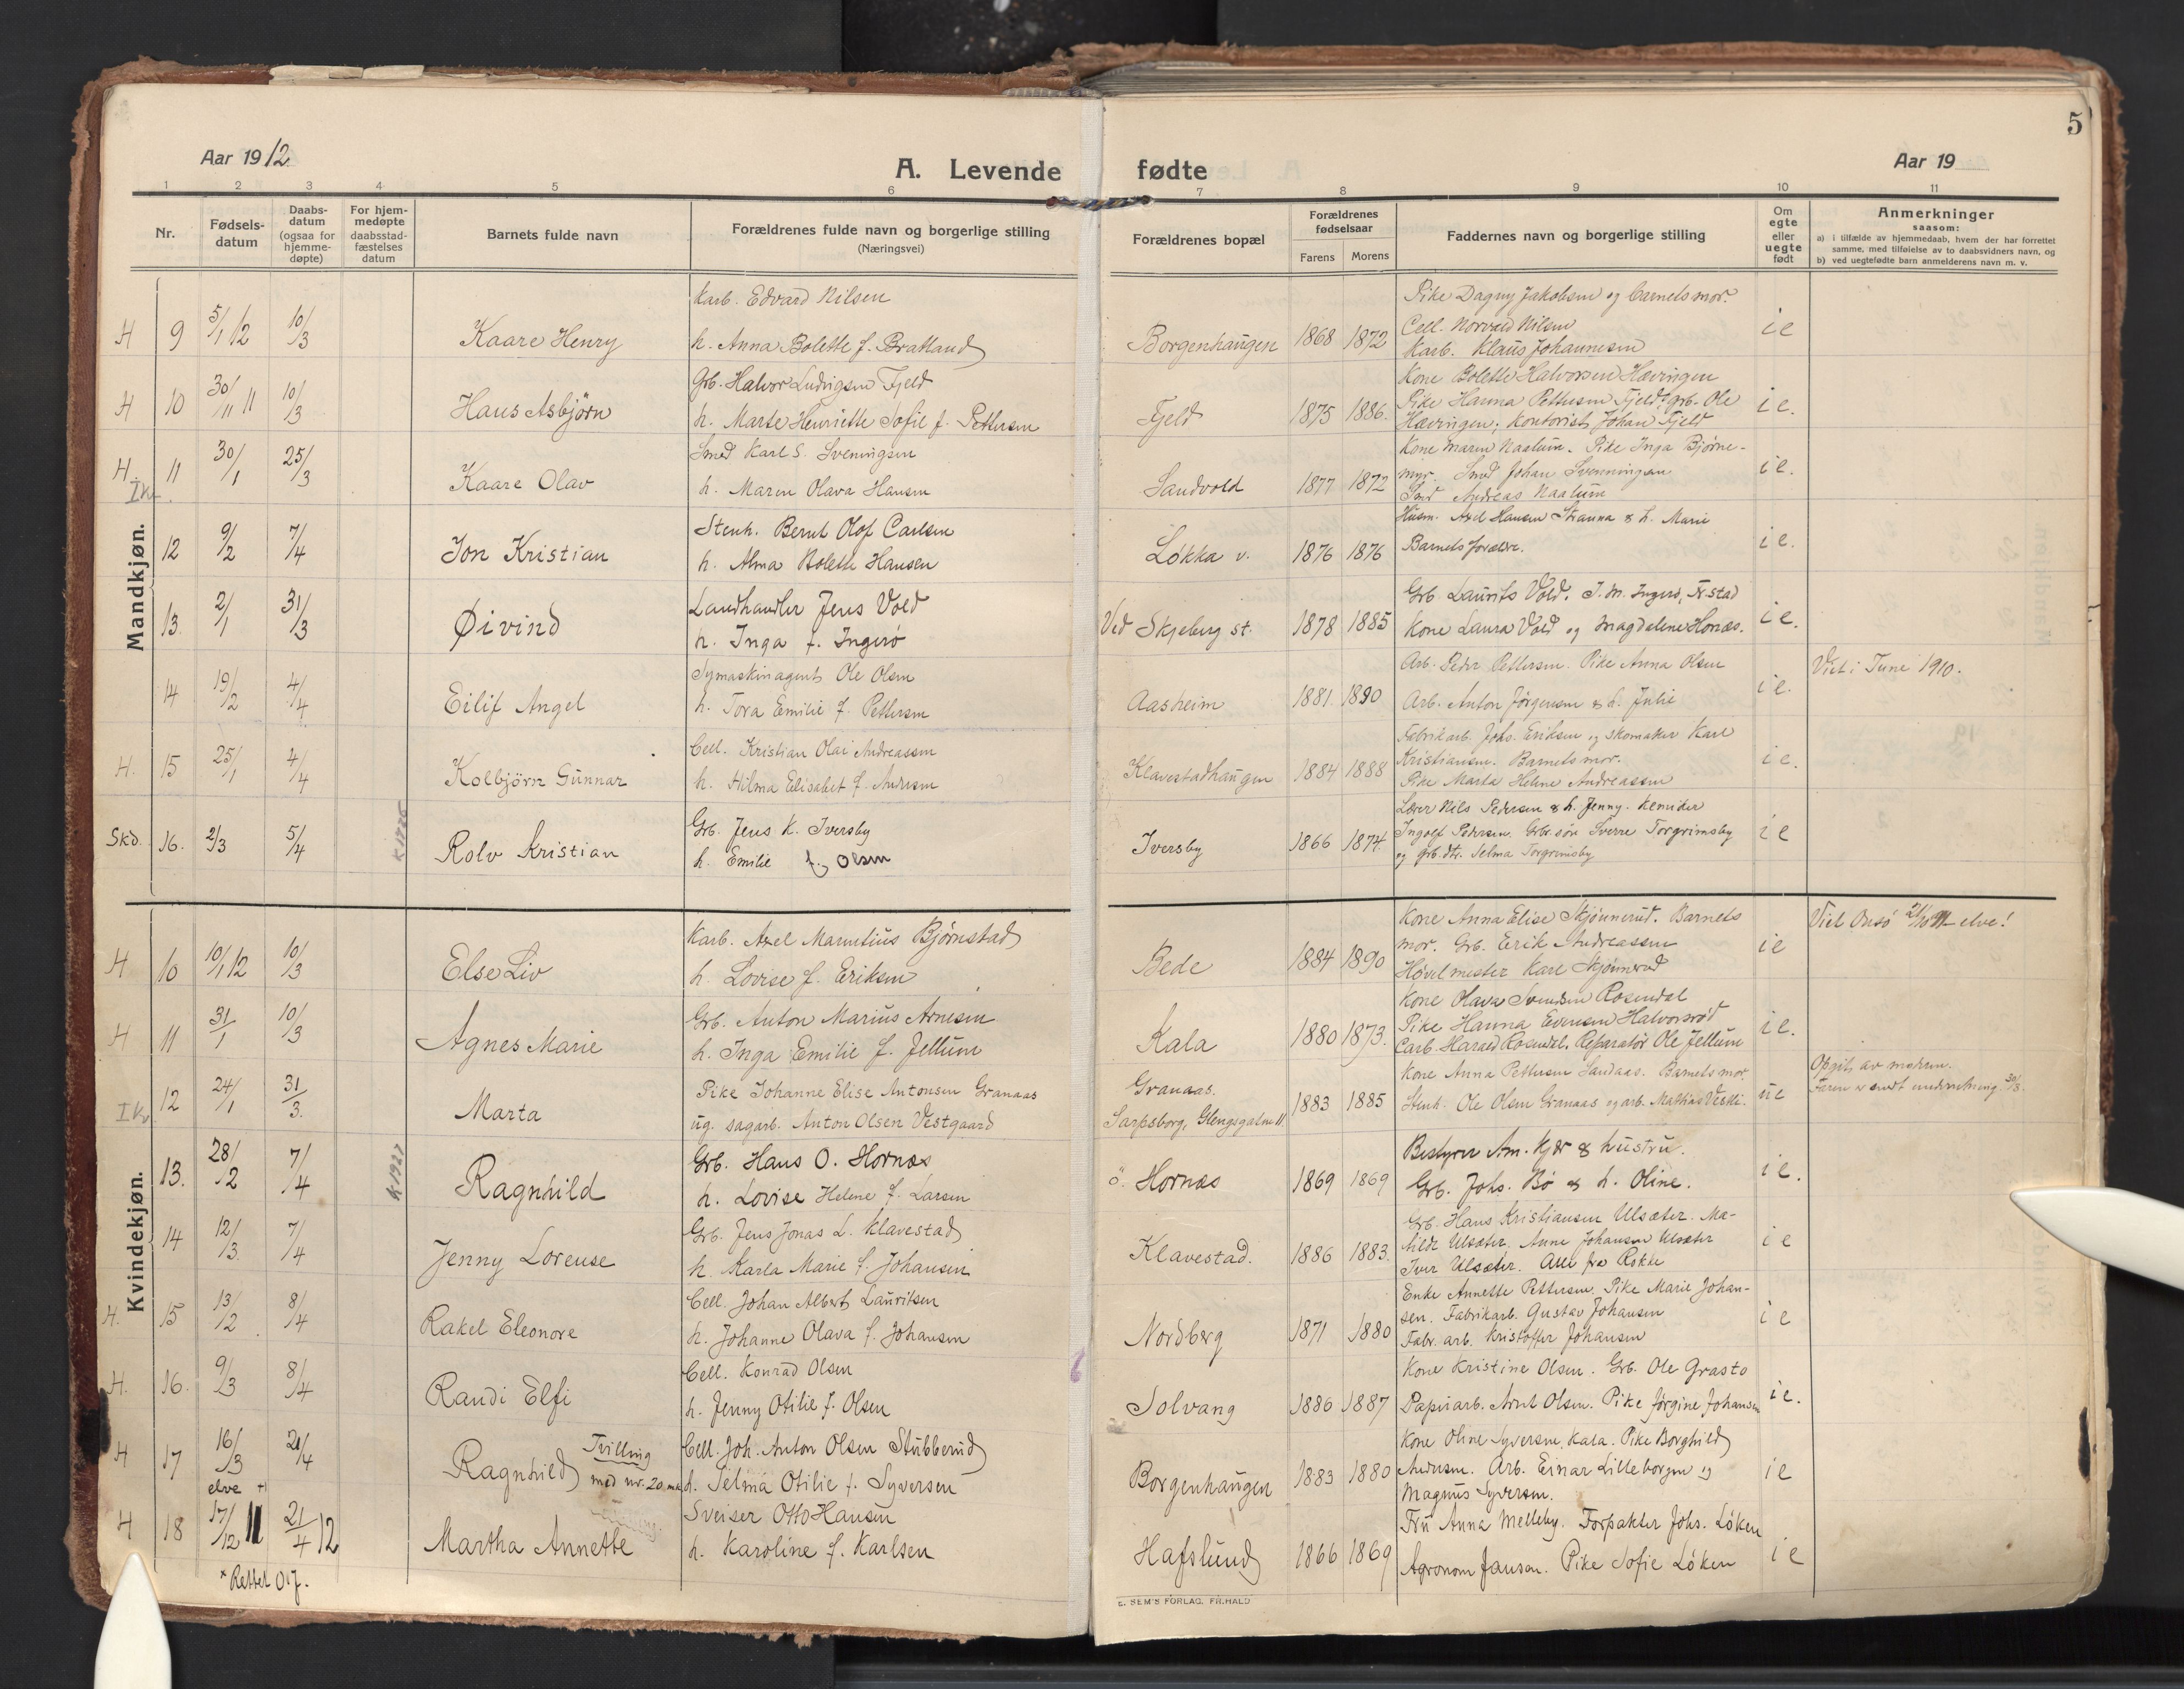 5
Aar 1912
A. Levende fødte
Aar 19
1 2 3 4 5 6 7 8 9 10 11
Nr.
Fødsels-
datum
Daabs-
datum
(ogsaa for
hjemme-
døpte)
For hjem-
medøpte
daabsstad-
fæstelses
datum
Barnets fulde navn
Forældrenes fulde navn og borgerlige stilling
(Næringsvei)
Forældrenes bopæl
Forældrenes
fødselsaar
Farens Morens
Faddernes navn og borgerlige stilling
Om
egte
eller
uegte
født
Anmerkninger
saasom:
a) i tilfælde av hjemmedaab, hvem der har forrettet
samme, med tilføielse av to daabsvidners navn, og
b) ved uegtefødte barn anmelderens navn m. v.
Mandkjøn.
H 9 5/1 12 10/3 Kaare Henry
Karb. Edvard Nilsen
h. Anna Bolette f. Bratland
Borgenhaugen 1868 1872
Pike Dagny Jakobsen og barnets mor.
Cell. Norvald Nilsen
Karb. Klaus Johannesen
i e
H 10 30/11 11 10/3 Hans Asbjörn
Grb. Halvor Ludvigsen Fjeld
h. Marte Henriette Sofie f. Pettersen
Fjeld 1875 1886.
Kone Bolette Halvorsen Hævingen
Pike Hanna Pettersen Fjeld, grb. Ole
Hævingen; Kontorist Johan Fjeld
i e.
H. 11 30/1 25/3 Kaare Olav
Smed Karl S. Sveningsen
h. Maren Olava Hansen
Sandvold 1877 1872
Kone Maren Naalum. Pike Inga Bjørne-
myr. Smed Johan Svenningsen
Smed Andreas Naalum
i e.
12 9/2 7/4 Jon Kristian
Stenh. Bernt Olof Carlsen
h. Alma Bolette Hansen
Løkka v. 1876 1876
Husm. Axel Hansen Stranna & h. Marie
Barnets forældre.
i e.
13. 2/1 31/3 Øivind
Landhandler Jens Vold
h. Inga f. Ingerö
Ved Skjeberg st. 1878 1885
Grb. Laurits Vold. J. M. Ingerö, Fr.stad
Kone Laura Vold og Magdalene Hornæs.
i e.
14 19/2 4/4 Eilif Angel
Symaskinagent Ole Olsen
h. Tora Emilie f. Pettersen
Aasheim 1881. 1890
Arb. Peder Pettersen. Pike Anna Olsen
Arb. Anton Jörgensen & h. Julie
i e.
Viet i June 1910.
H. 15 25/1 4/4 Kolbjörn Gunnar
Cell. Kristian Olai Andreassen
h. Hilma Elisabet f. Andersen
Klavestadhaugen 1884 1888
Fabrikarb. Johs. Eriksen og skomaker Karl
Kristiansen. Barnets mor.
Pike Marta Helene Andreassen
i e.
Skd. 16. 2/3 5/4 Rolv Kristian
Grb. Jens K. Iversby
h. Emilie f. Olsen
Iversby 1866 1874.
Lærer Nils Pedersen & h. Jenny. Kemiker
Ingolf Pedersen. Grb. søn Sverre Torgrimsby
og grb. dtr. Selma Torgrimsby
i e
Kvindekjøn.
H 10 10/1 12 10/3 Else Liv
Karb. Axel Marentius Bjørnstad
h. Lovise f. Eriksen
Bede 1884 1890
Kone Anna Elise Skjønnerud. Barnets
mor. Grb. Erik Andreassen
Høvelmester Karl Skjønnerud
i e
Viet Onsö elve!
H 11 31/1 10/3 Agnes Marie
Grb. Anton Marius Arnesen
h. Inga Emilie f. Jellum
Kala 1880 1873.
Kone Olava Svendsen Rosendal
Pike Hanna Evensen Halvorsrød
Carb. Harald Rosendal. Reparatør Ole Jellum
i e.
12 24/1 31/3. Marta
Pike Johanne Elise Antonsen Granaas
ug. sagarb. Anton Olsen Vestgaard
Granaas.
Sarpsborg, Glengsgaten 11. 1883 1885
Kone Anna Pettersen Sandaas. Barnets mor.
Stenh. Ole Olsen Granaas og arb. Mathias
u e
Opgit av moderen.
Faren er sendt underretning 30/3.
K 1927
13. 28/2 7/4 Ragnhild
Grb. Hans O. Hornæs
h. Lovise Helene f. Larsen
ö. Hornæs 1869 1869
Bestyrer Am. Kjær & hustru.
Grb. Johs. Bø & h. Oline.
i e.
14 12/3 7/4 Jenny Lorense
Grb. Jens Jonas L. Klavestad
h. Karla Marie f. Johansen
Klavestad. 1886 1883.
Grb. Hans Kristiansen Ulsæter. Ma-
tilde Ulsæter. Anne Johansen Ulsæter
Iver Ulsæter. Alle fra Rokke
i e
H. 15 13/2 8/4 Rakel Eleonore
Cell. Johan Albert Lauritsen
h. Johanne Olava f. Johansen
Nordberg 1871 1880
Enke Annette Pettersen. Pike Marie Johan-
sen. Fabrikarb. Gustav Johansen
Fabr. arb. Kristoffer Johansen
i e
H. 16. 9/3 8/4 Randi Elfi
Cell. Konrad Olsen
h. Jenny Otilie f. Olsen
Solvang 1886 1887
Kone Kristine Olsen. Grb. Ole Grasto
Papirarb. Arnt Olsen. Pike Jørgine Johansen
i e.
H 17 16/3 21/4 Ragnhild
Tvilling
med nr. 20.
Cell. Joh. Anton Olsen Stubberud
h. Selma Otilie f. Syversen
Borgenhaugen 1883 1880
Kone Oline Syversen, Kala. Pike Borghild
Andersen. Arb. Einar Lilleborgen og
Magnus Syversen.
i e
elve +
H 18 17/12 11 21/4 12 Martha Annette
Sveiser Otto Hansen
h. Karoline f. Karlsen
Hafslund 1866 1869
Fru Anna Melleby. Forpakter Johs. Löken
Agronom Jansen. Pike Sofie Löken
i e
* Rettet O.J.
E. SEM'S FORLAG, FR.HALD